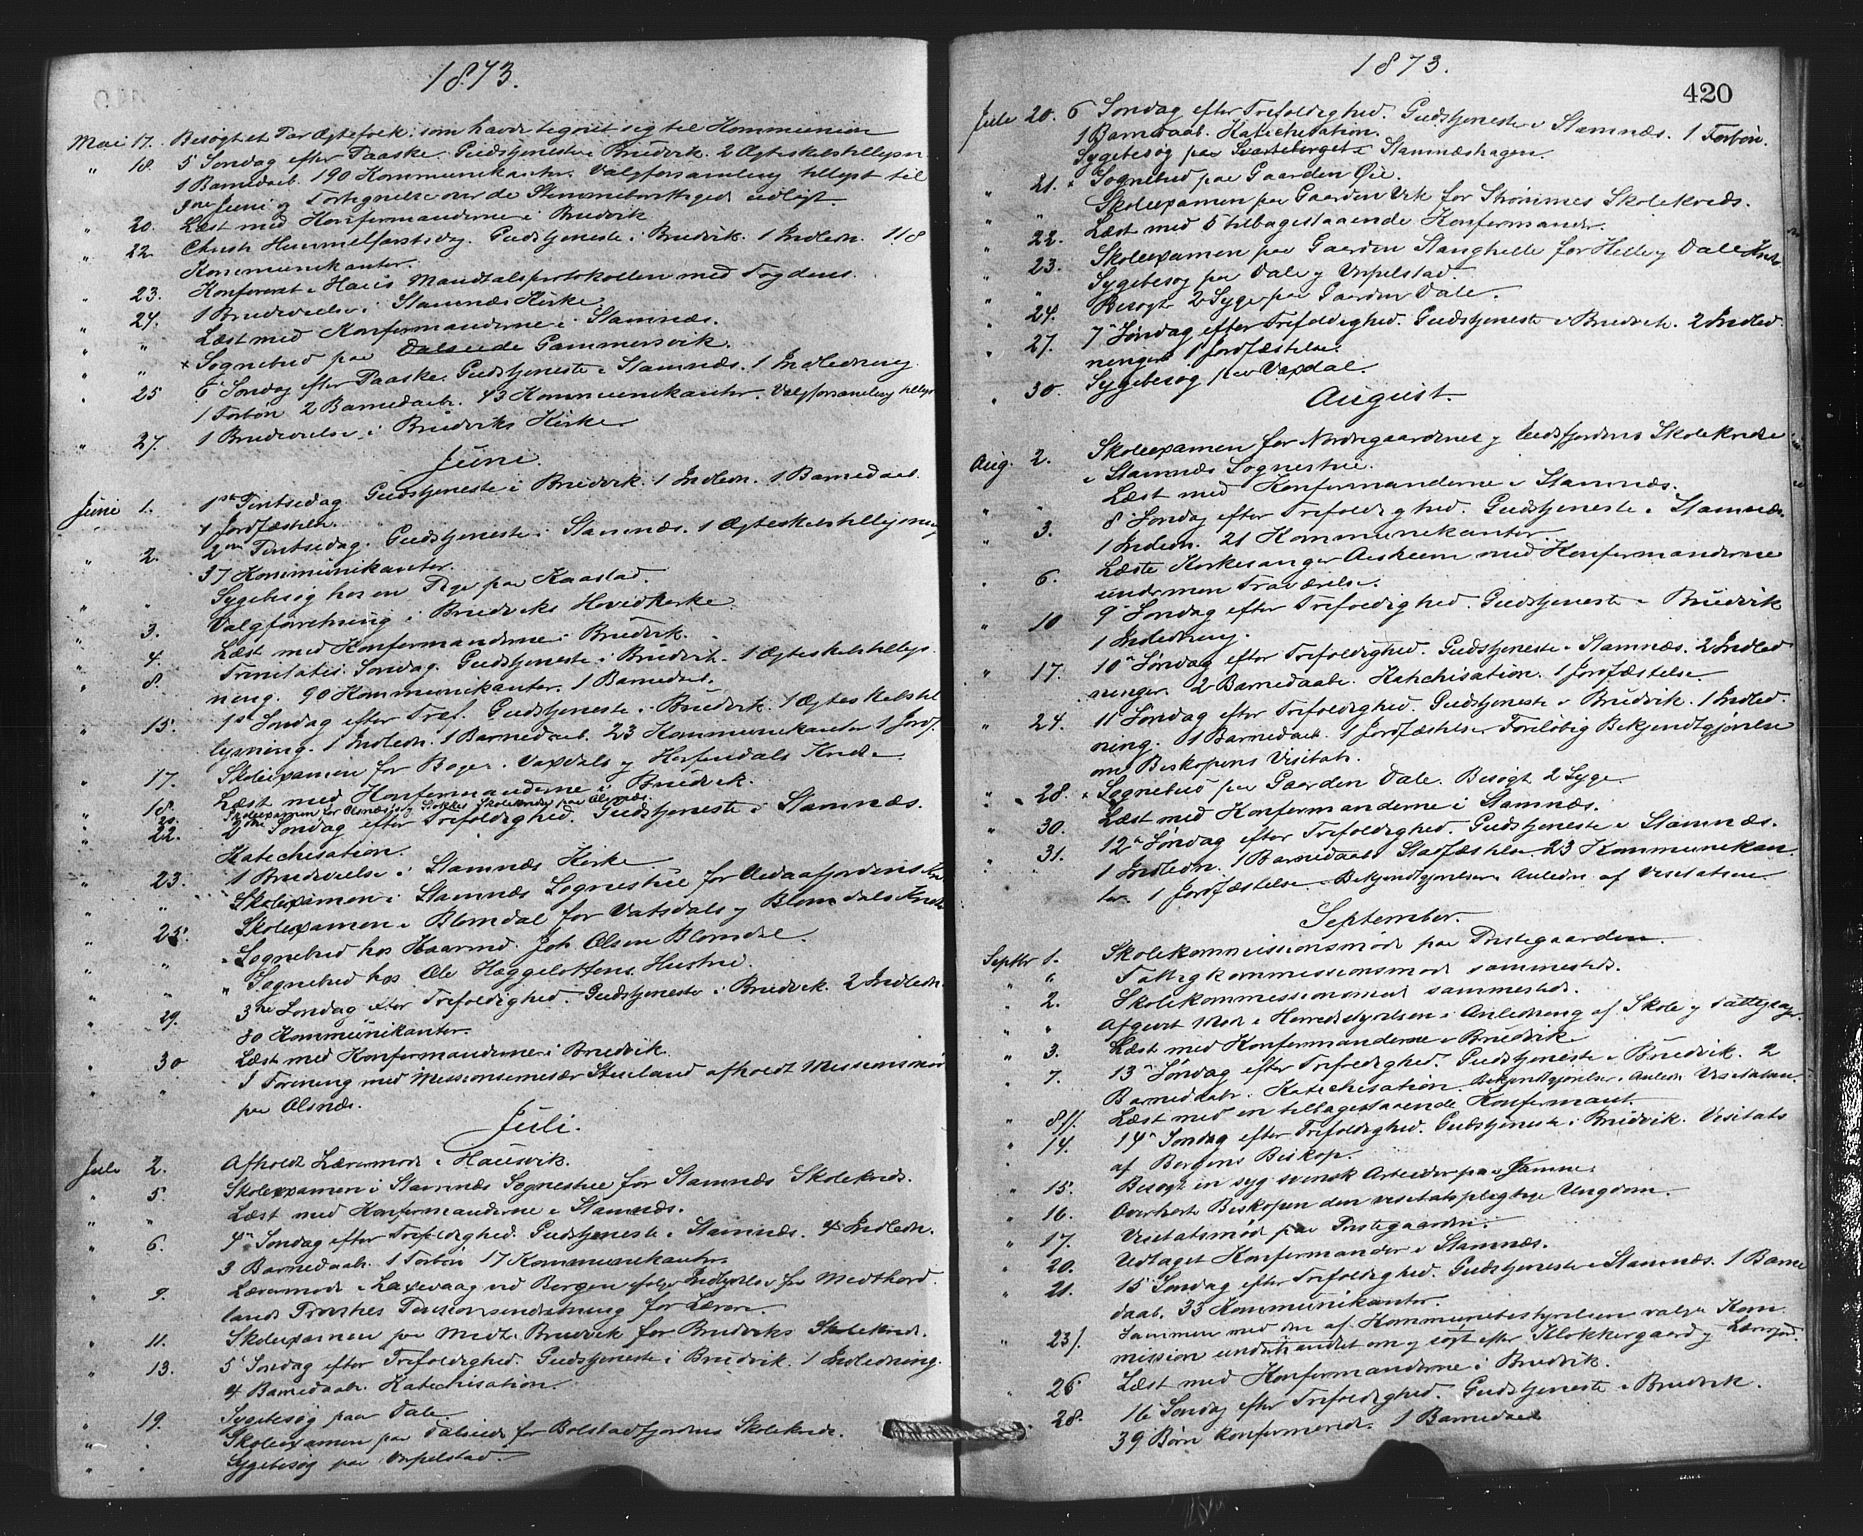 1873.
Mai 17. Besøgt et Par Ægtefolk, som havde tegnet sig til Kommunion
" 18. 5 Søndag efter Paaske. Gudstjeneste i Bruvik. 2 Ægteskabstillysn.
1 Barnedaab. 190 Kommunikanter. Valgforsamling tillyst til
3die Juni og Fortegnelse over de Stemmeberettigede udlagt.
" 20. Læst med Konfirmanderne i Bruvik
" 22. Christi Himmelfartsdag. Gudstjeneste i Bruvik. 1 Indledn. 118
Kommunikanter.
" 23. Konfereret i Haus Mandtalsprotokollen med Fogdens.
" 24. 1 Brudevielse i Stamnæs Kirke.
" " Læst med Konfirmanderne i Stamnæs.
" " × Sognebud paa Dalseide Gammersvik.
" 25 6 Søndag efter Paaske. Gudstjeneste i Stamnæs. 1 Indledning
1 Forbøn 2 Barnedaab. 43 Kommunikanter. Valgforsamling tillyst
" 27. 1 Brudevielse i Bruviks Kirke
Juni.
Juni 1. 1ste Pintsedag. Gudstjeneste i Bruvik. 1 Indledn. 1 Barnedaab.
1 Jordfæstelse.
" 2. 2den Pintsedag. Gudstjeneste i Stamnæs. 1 Ægteskabstillysning
37 Kommunikanter.
" " Sygebesøg hos en Pige paa Kaastad.
" 3. Valgforretning i Bruviks Hovedkirke.
" 4. Læst med Konfirmanderne i Bruvik.
" 8. Trinitatis Søndag. Gudstjeneste i Bruvik. 1 Ægteskabstillys
ning. 90 Kommunikanter. 1 Barnedaab.
" 15. 1ste Søndag efter Tref. Gudstjeneste i Bruvik. 1 Ægteskabstil
lysning. 1 Indledn. 1 Barnedaab. 23 Kommunikanter 1 Jordf.
" 17. Skoleexamen for Boge, Vaxdals og Herfindals Kreds
" 18. Læst med Konfirmanderne i Bruvik.
" 20. Skoleexamen for Olsnæs og Skolekreds paa Olsnæs.
" 22. 2den Søndag efter Trefoldighed. Gudstjeneste i Stamnæs.
Katechisation.
" 23. 1 Brudevielse i Stamnæs Kirke
" " Skoleexamen i Stamnæs Sognestue for
" 25. Skoleexamen i Blomdal for Vatsdals og Blomdals Kreds
" " Sognebud hos Kaarmd. Joh. Olsen Blomdal.
" " Sognebud hos Ole Hæggeloftens Hustru.
" 29. 3die Søndag efter Trefoldighed. Gudstjeneste i Bruvik. 2 Indledn.
30 Kommunikanter.
" 30 Læst med Konfirmanderne i Bruvik.
" " I Forening med Missionsemissær afholdt Missionsmøde
paa Olsnæs.
Juli.
Juli 2. Afholdt Læremøde i Hausvik.
" 5. Skoleexamen i Stamnæs Sognestue for Stamnæs Skolekreds.
" " Læst med Konfirmanderne i Stamnæs.
" 6. 4de Søndag efter Trefoldighed. Gudstjeneste i Stamnæs. 4 Indledn.
3 Barnedaab. 1 Forbøn 17 Kommunikanter
" 9. Læremøde i Laxevaag ved Bergen ifølge Indbydelse fra Midthord
lands Provsties Pensionsindretning for Lærere.
" 11. Skoleexamen paa Midt Bruvik for Bruviks Skolekreds.
" 13. 5 Søndag efter Trefoldighed. Gudstjeneste i Bruvik. 1 Indledning.
4 Barnedaab. Katechisation.
" 19. Sygebesøg paa Dale.
" " Skoleexamen paa for Bolstadfjordens Skolekreds.
" " Sygebesøg paa Urpelstad.
1873.
420
Juli 20. 6 Søndag efter Trefoldighed. Gudstjeneste i Stamnæs. 1 Forbøn.
1 Barnedaab. Katechisation.
Sygebesøg paa Svarteberget i Stamnæshagen.
" 21. × Sognebud paa Gaarden Øie.
" " Skoleexamen paa Gaarden Vik for Strømmes Skolekreds.
" 22. Læst med 5 tilbagestaaende Konfirmander.
" 23. Skoleexamen paa Gaarden Stanghelle for Helle og Dale Kreds
" " Sygebesøg paa Dale og Urpelstad.
" 24. Besøgt 2 Syge paa Gaarden Dale.
" 27. 7de Søndag efter Trefoldighed. Gudstjeneste i Bruvik. 2 Indled
ninger 1 Jordfæstelse.
" 30. Sygebesøg paa Vaxdal.
August.
Aug. 2. Skoleexamen for Nordregaardenes og Eidsfjordens Skolekredse
i Stamnæs Sognestue.
" " Læst med Konfirmanderne i Stamnæs.
" 3. 8 Søndag efter Trefoldighed. Gudstjeneste i Stamnæs
1 Indledn. 21 Kommunikanter.
" 6. Læste Kirkesanger med Konfirmanderne
under min Fraværelse.
" 10 9de Søndag efter Trefoldighed. Gudstjeneste i Bruvik
1 Indledning.
" 17. 10de Søndag efter Trefoldighed. Gudstjeneste i Stamnæs. 2 Indled
ninger. 2 Barnedaab. Katchisation. 1 Jordfæstelse
" 24. 11te Søndag efter Trefoldighed. Gudstjeneste i Bruvik. 1 Indled.
ning. 1 Barnedaab. 1 Jordfæstelse Foreløbig Bekjendtgjørelse
om Biskopens Visitats.
" 28. × Sognebud paa Gaarden Dale. Besøgt 2 Syge.
" 30. Læst med Konfirmanderne i Stamnæs.
" 31. 12te Søndag efter Trefoldighed. Gudstjeneste i Stamnæs.
1 Indledn. 1 Barnedaab Stadfæstelse. 23 Kommunikan
ter. 1 Jordfæstelse. Bekjendtgjørelse i Anledn. af Visitatsen
September.
Septbr 1. Skolekommissionsmøde paa Prestegaarden.
" " Fattigkommissionsmøde sammesteds.
" 2. Skolekommissionsmøde sammesteds.
" " Afgivet Møde i Herredsstyrelsen i Anledning af Skole og Fattigsager.
" 3. Læst med Konfirmanderne i Bruvik
" 7. 13de Søndag efter Trefoldighed. Gudstjeneste i Bruvik. 2
Barnedaab. Katechisation. Bekjendtgjørelse i Anledn. Visitatsen.
" 8/. Læst med en tilbagestaaende Konfirmant.
" 14. 14de Søndag efter Trefoldighed. Gudstjeneste i Bruvik. Visitats
af Bergens Biskop.
" 15. Besøgt en syg svensk Arbeider paa Jamne.
" 16. Overhørt Biskopen den visitatspligtige Ungdom.
" 17. Visitatsmøde paa Prestegaarden.
" 20. Udtaget Konfirmander i Stamnæs.
" 21. 15 Søndag efter Trefoldighed. Gudstjeneste i Stamnæs. 1 Barne
daab. 33 Kommunikanter.
" 23/. Sammen med den af Kommunebestyrelsen valgte Kom
mission underhandlet om og søgt efter Klokkergaard og
" 26 Læst med Konfirmanderne i Bruvik.
" 28. 16 Søndag efter Trefoldighed. Gudstjeneste i Bruvik.
39 Børn konfirmerede. 1 Barnedaab